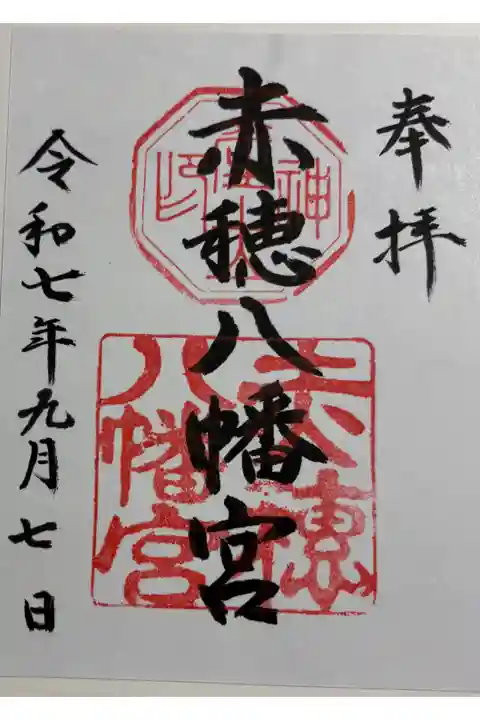 奉拝
赤穂八幡宮
赤穂
八幡宮
令和七年九月七日